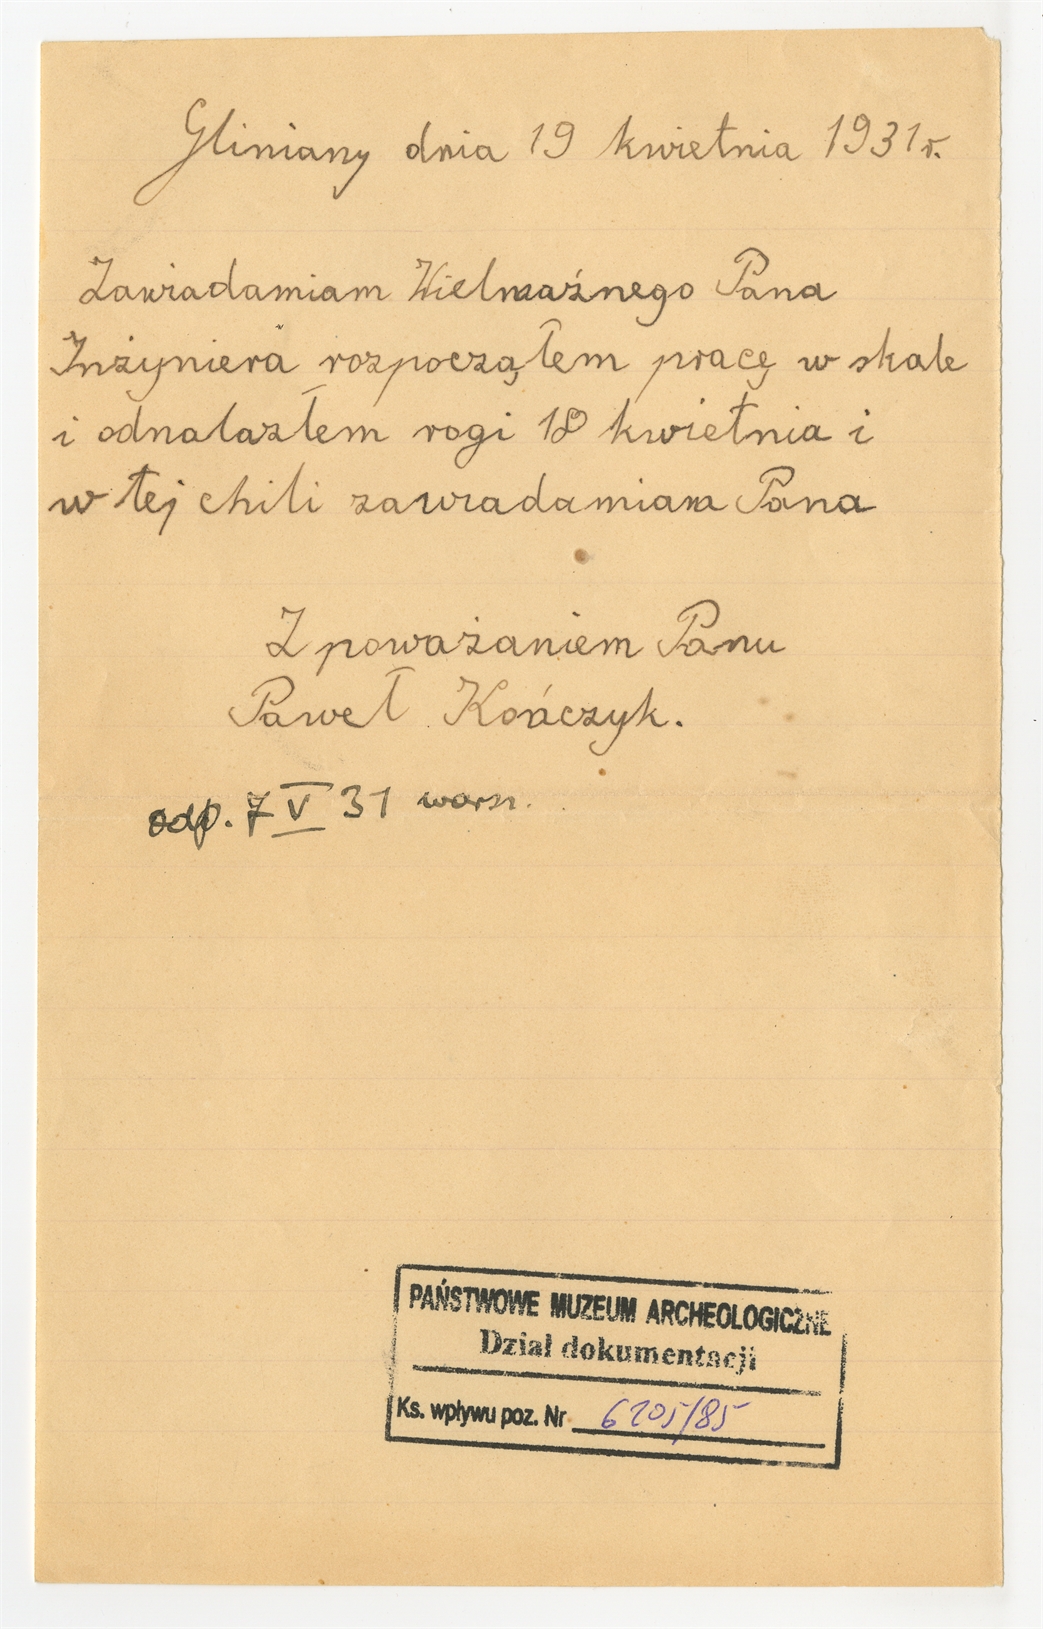 Gliniany dnia 19 kwietnia 1931 r.
Zawiadamiam Wielmażnego Pana
Inżyniera rozpocząłem pracę w skale
i odnalazłem rogi 18 kwietnia i
w tej chili zawiadamiam Pana
Z poważaniem Panu
Paweł Kończyk.
odp. 7 V 31 warsz.
PAŃSTWOWE MUZEUM ARCHEOLOGICZNE
Dział dokumentacji
Ks. wpływu poz. Nr 6205/85